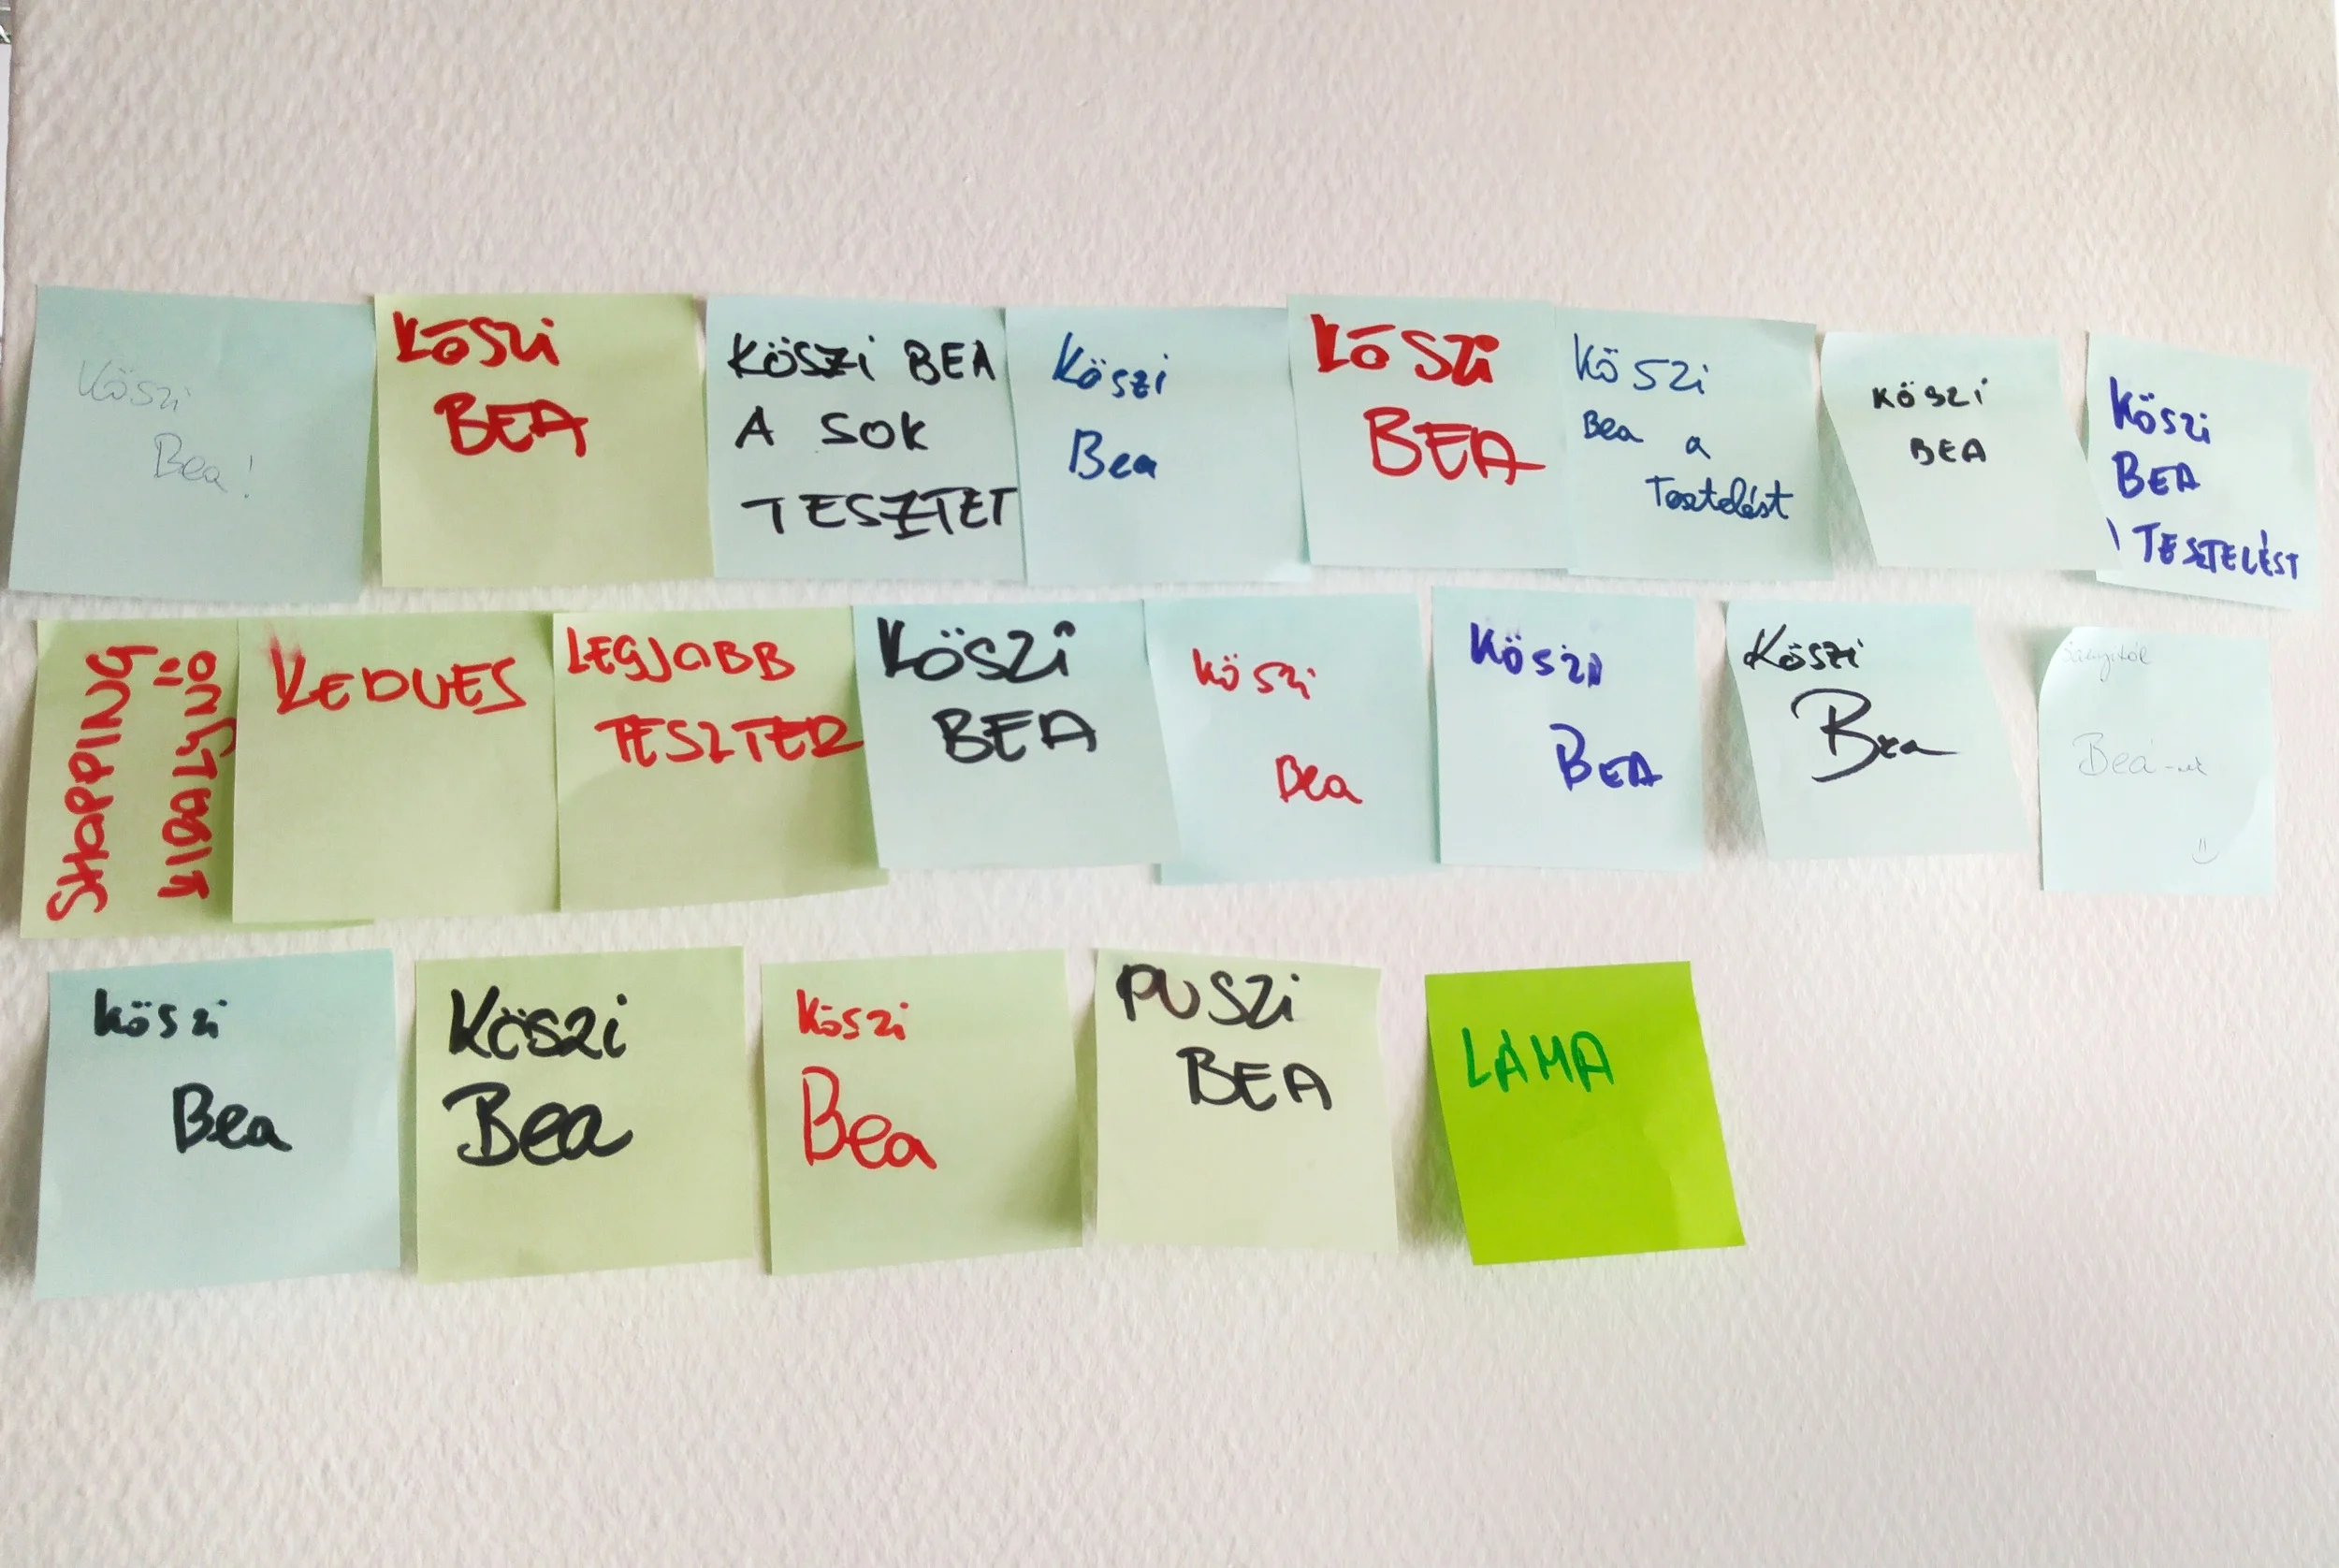 Köszi
Bea!
Köszi
BEA
KÖSZi BEA
A SOK
TESZTET
Köszi
Bea
KöSZi
BEA
Kö SZi
Bea a
Tesztelést
KÖSZi
BEA
Köszi
BEA
A TESZTELÉST
SHOPPING
KIRALYNŐ
KEDVES
LEGJOBB
TESZTER
KÖSZi
BEA
Köszi
Bea
Köszi
BEA
Köszi
Bea
Beá-nak
Köszi
Bea
Köszi
Bea
Köszi
Bea
PUSZi
BEA
LÁMA